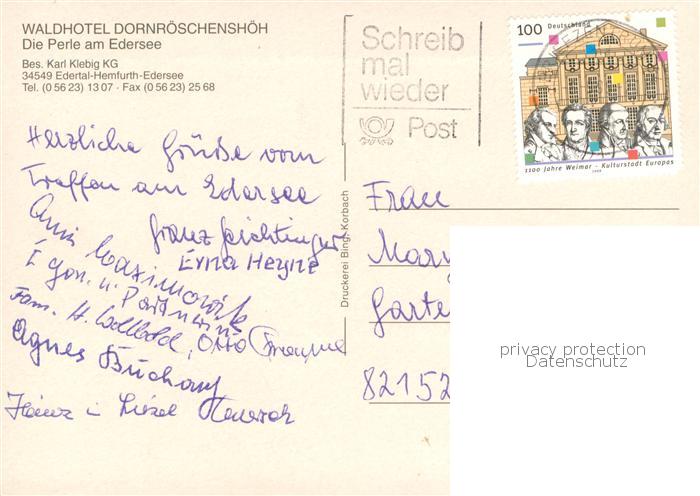 WALDHOTEL DORNRÖSCHENSHÖH
Die Perle am Edersee
Bes. Karl Klebig KG
34549 Edertal-Hemfurth-Edersee
Tel. (0 56 23) 13 07 · Fax (0 56 23) 25 68
Schreib
mal
wieder
Post
100 Deutschland
1100 Jahre Weimar - Kulturstadt Europas
1999
Herzliche Grüße vom
Treffen am Edersee
Franz
Erna Heyne
Egon u.
Fam. H. Otto
Agnes
Heinz u Liesel
Druckerei Bing, Korbach
Frau
Mar
Garte
82152
privacy protection
Datenschutz